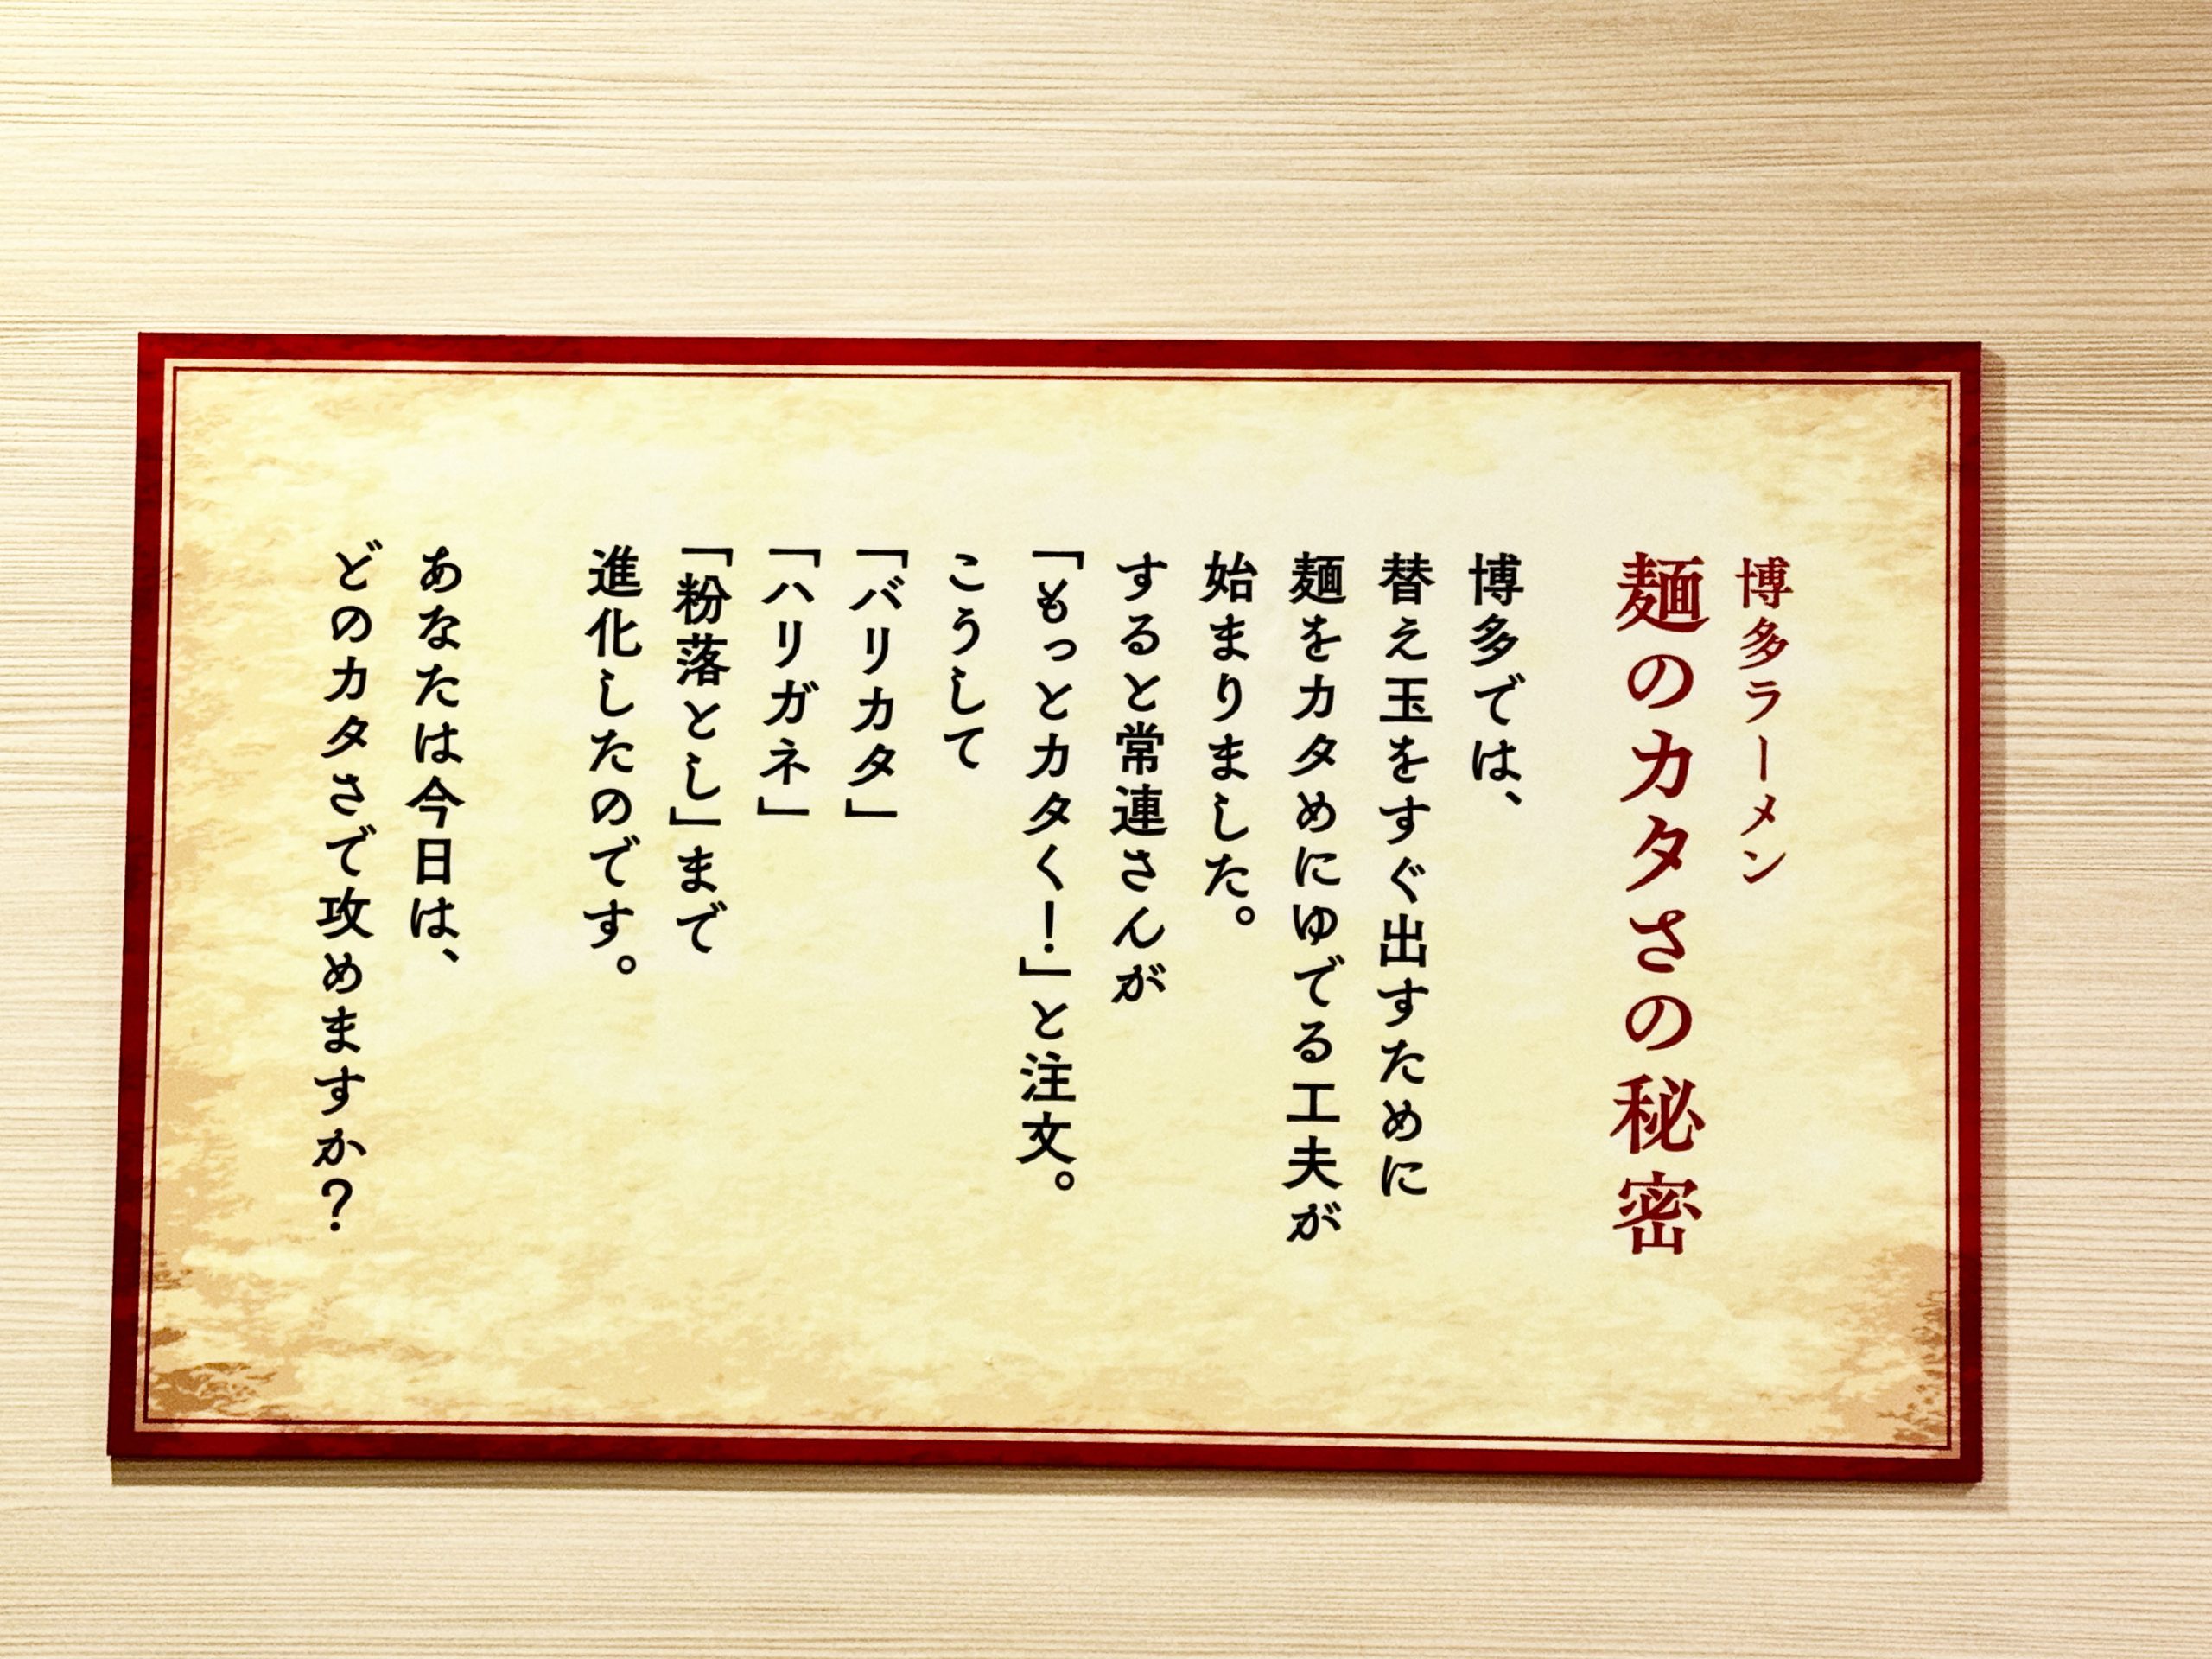 博多ラーメン
麺のカタさの秘密
博多では、
替え玉をすぐ出すために
麺をカタめにゆでる工夫が
始まりました。
すると常連さんが
「もっとカタく！」と注文。
こうして
「バリカタ」
「ハリガネ」
「粉落とし」まで
進化したのです。
あなたは今日は、
どのカタさで攻めますか？